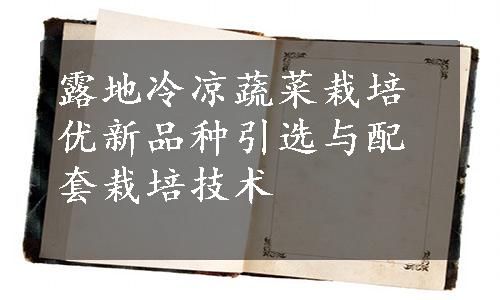 露地冷凉蔬菜栽培
优新品种引选与配
套栽培技术